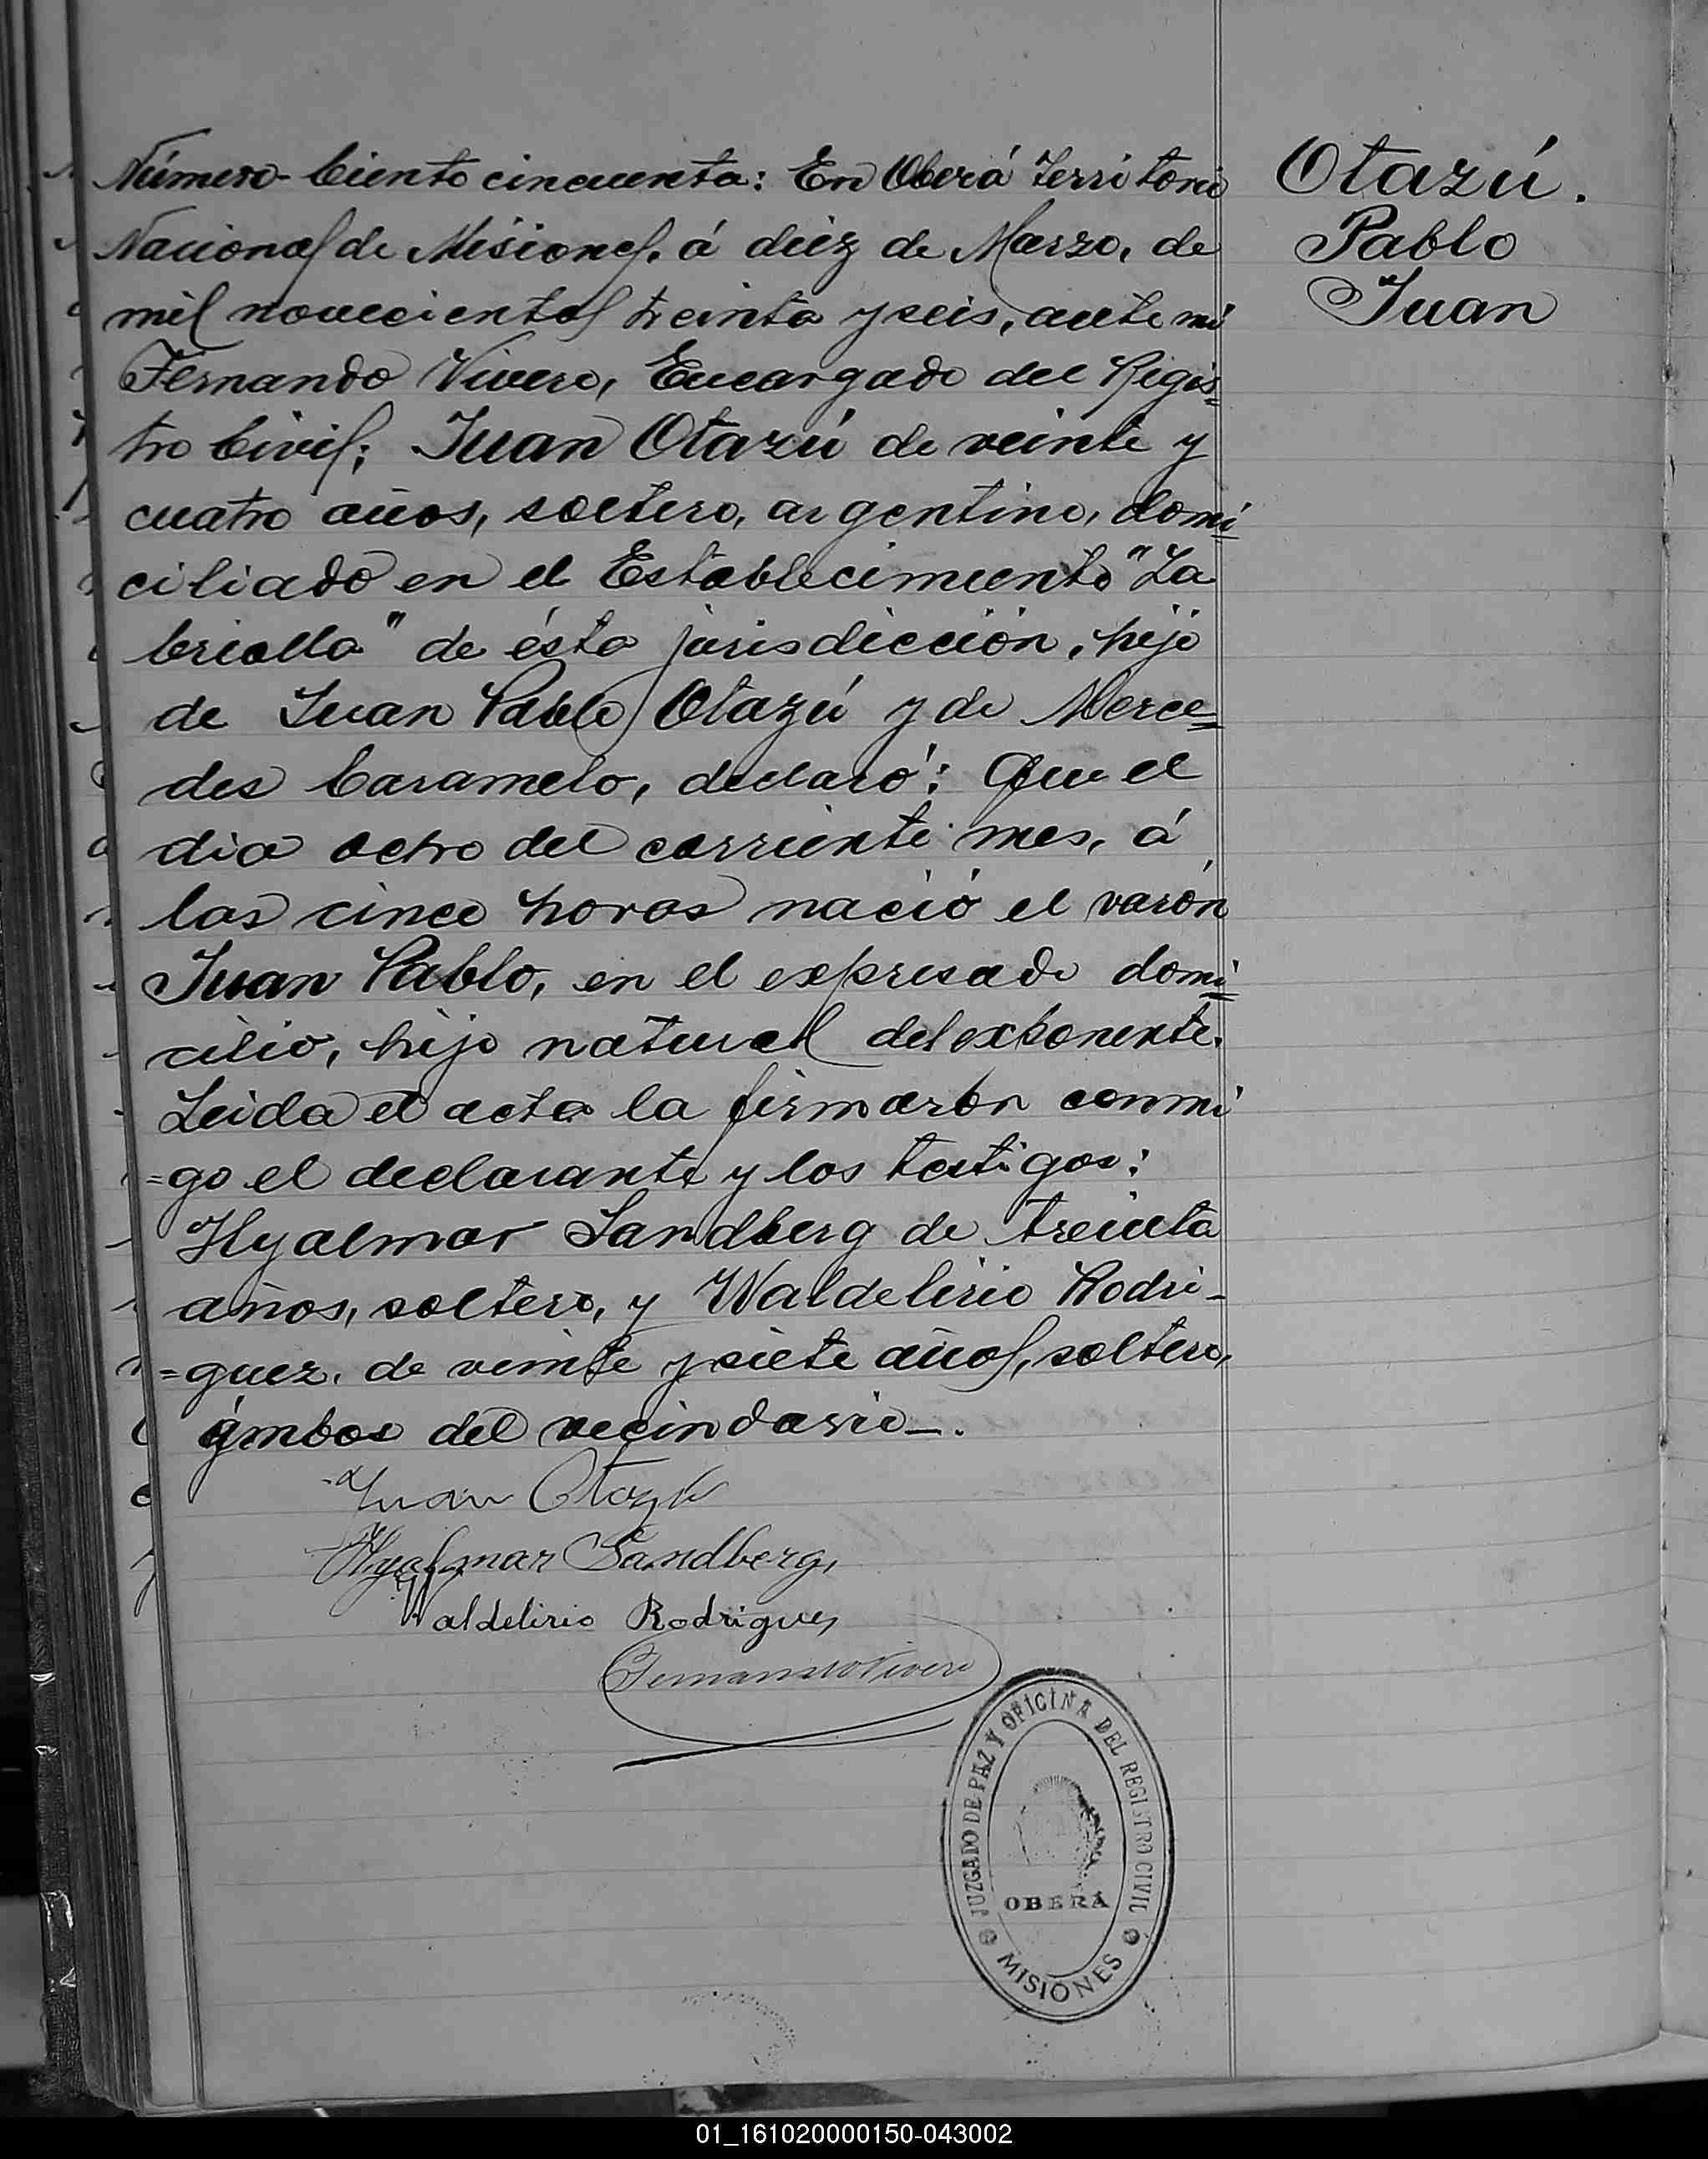 Número Ciento cincuenta: En Oberá Territorio
Nacional de Misiones, á diez de Marzo, de
mil novecientos treinta y seis, ante mi
Fernando Vivero, Encargado del Regis=
tro Civil; Juan Otazú de veinte y
cuatro años, soltero, argentino, domi=
ciliado en el Establecimiento "La
Criolla" de ésta jurisdicción, hijo
de Juan Pablo Otazú y de Merce=
des Caramelo, declaró: Que el
dia ocho del corriente mes, á
las cinco horas nació el varón
Juan Pablo, en el expresado domi=
cilio, hijo natural del exponente.
Leida el acta la firmarón conmi
=go el declarante y los testigos:
Hyalmar Sandberg de treinta
años, soltero, y Waldelirio Rodri-
=guez, de veinte y siete años, soltero,
ámbos del vecindario_.
Juan Otazú
Hyalmar Sandberg,
Waldelirio Rodrigues
Fernando Vivero
Otazú.
Pablo
Juan
JUZGADO DE PAZ Y OFICINA DEL REGISTRO CIVIL
OBERÁ
MISIONES
01_161020000150-043002